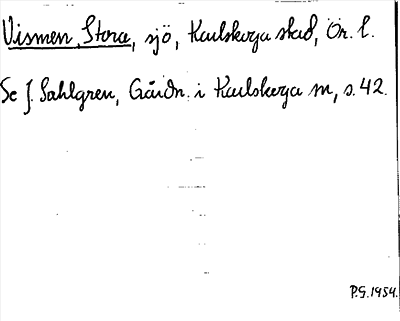 Vismen, Stora, sjö, Karlskoga skad, Ör. l.
Se J. Sahlgren, Gårdn. i Karlskoga m, s. 42.
P.G. 1954.